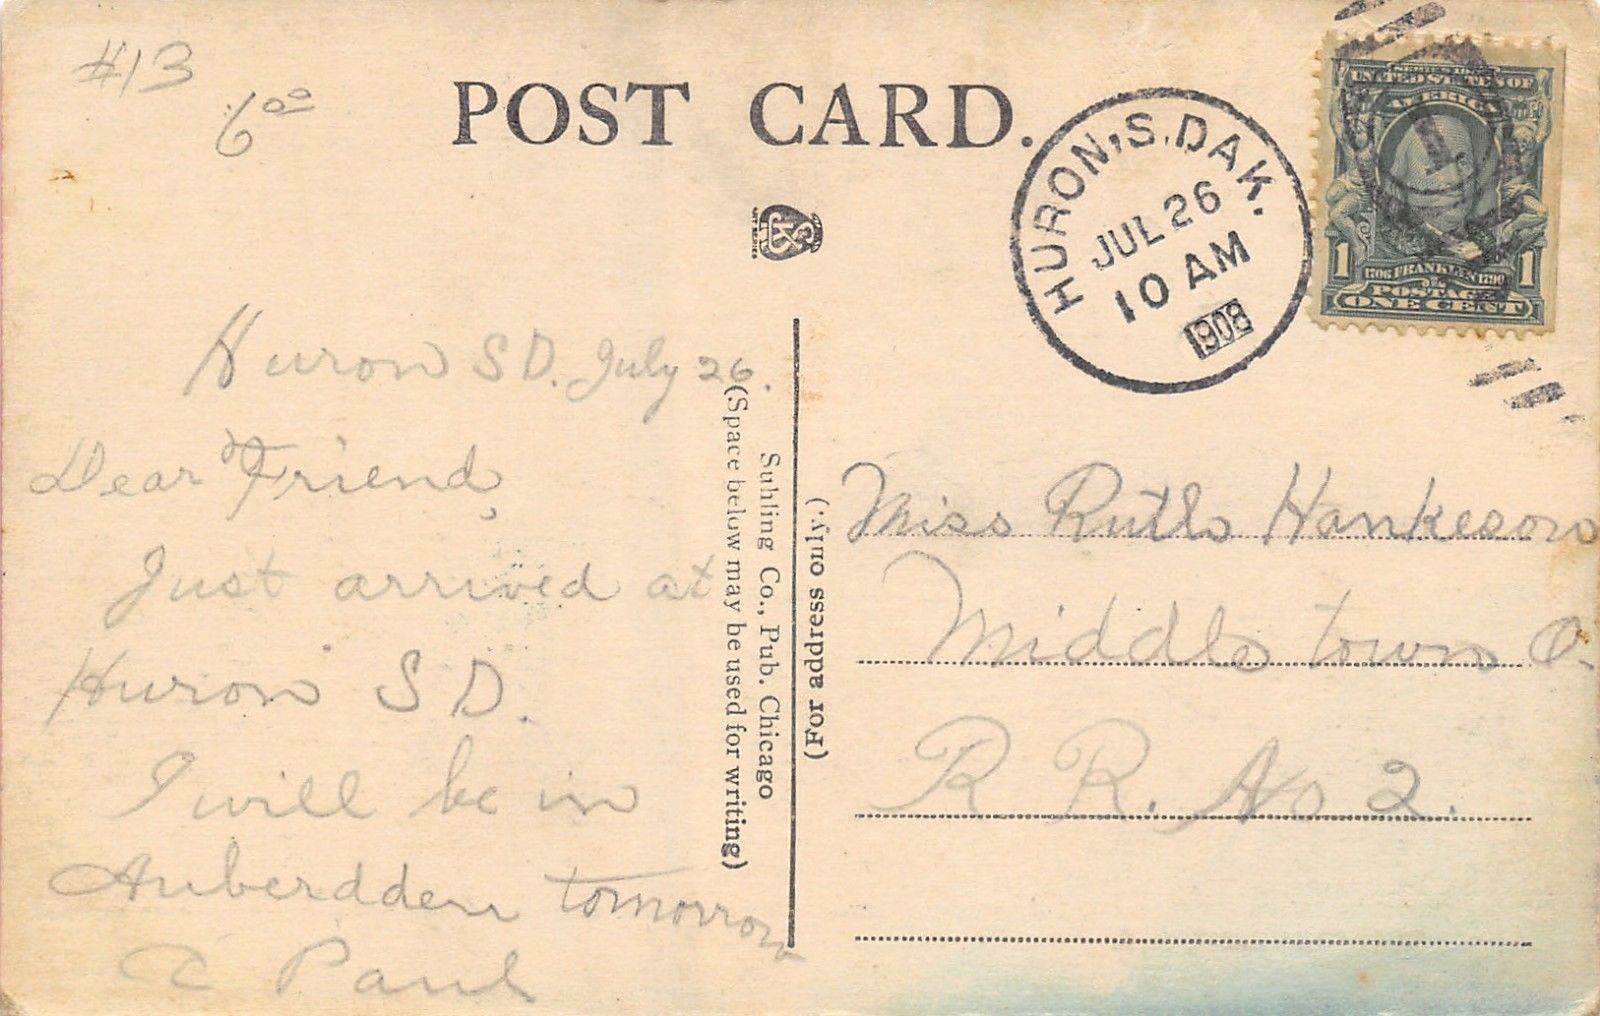 #13
6 00
POST CARD.
HURON, S. DAK.
JUL 26
10 AM
1908
UNITED STATES OF
AMERICA
1706 FRANKLIN 1790
1 1
POSTAGE
ONE CENT
Huron S D. July 26.
Dear Friend,
Just arrived at
Huron S D.
I will be in
Auberdden tomorrow
C Paul
(Space below may be used for writing)
Suhling Co., Pub. Chicago
(For address only.)
Miss Ruth Hankeson
Middle town O.
R R. No 2.